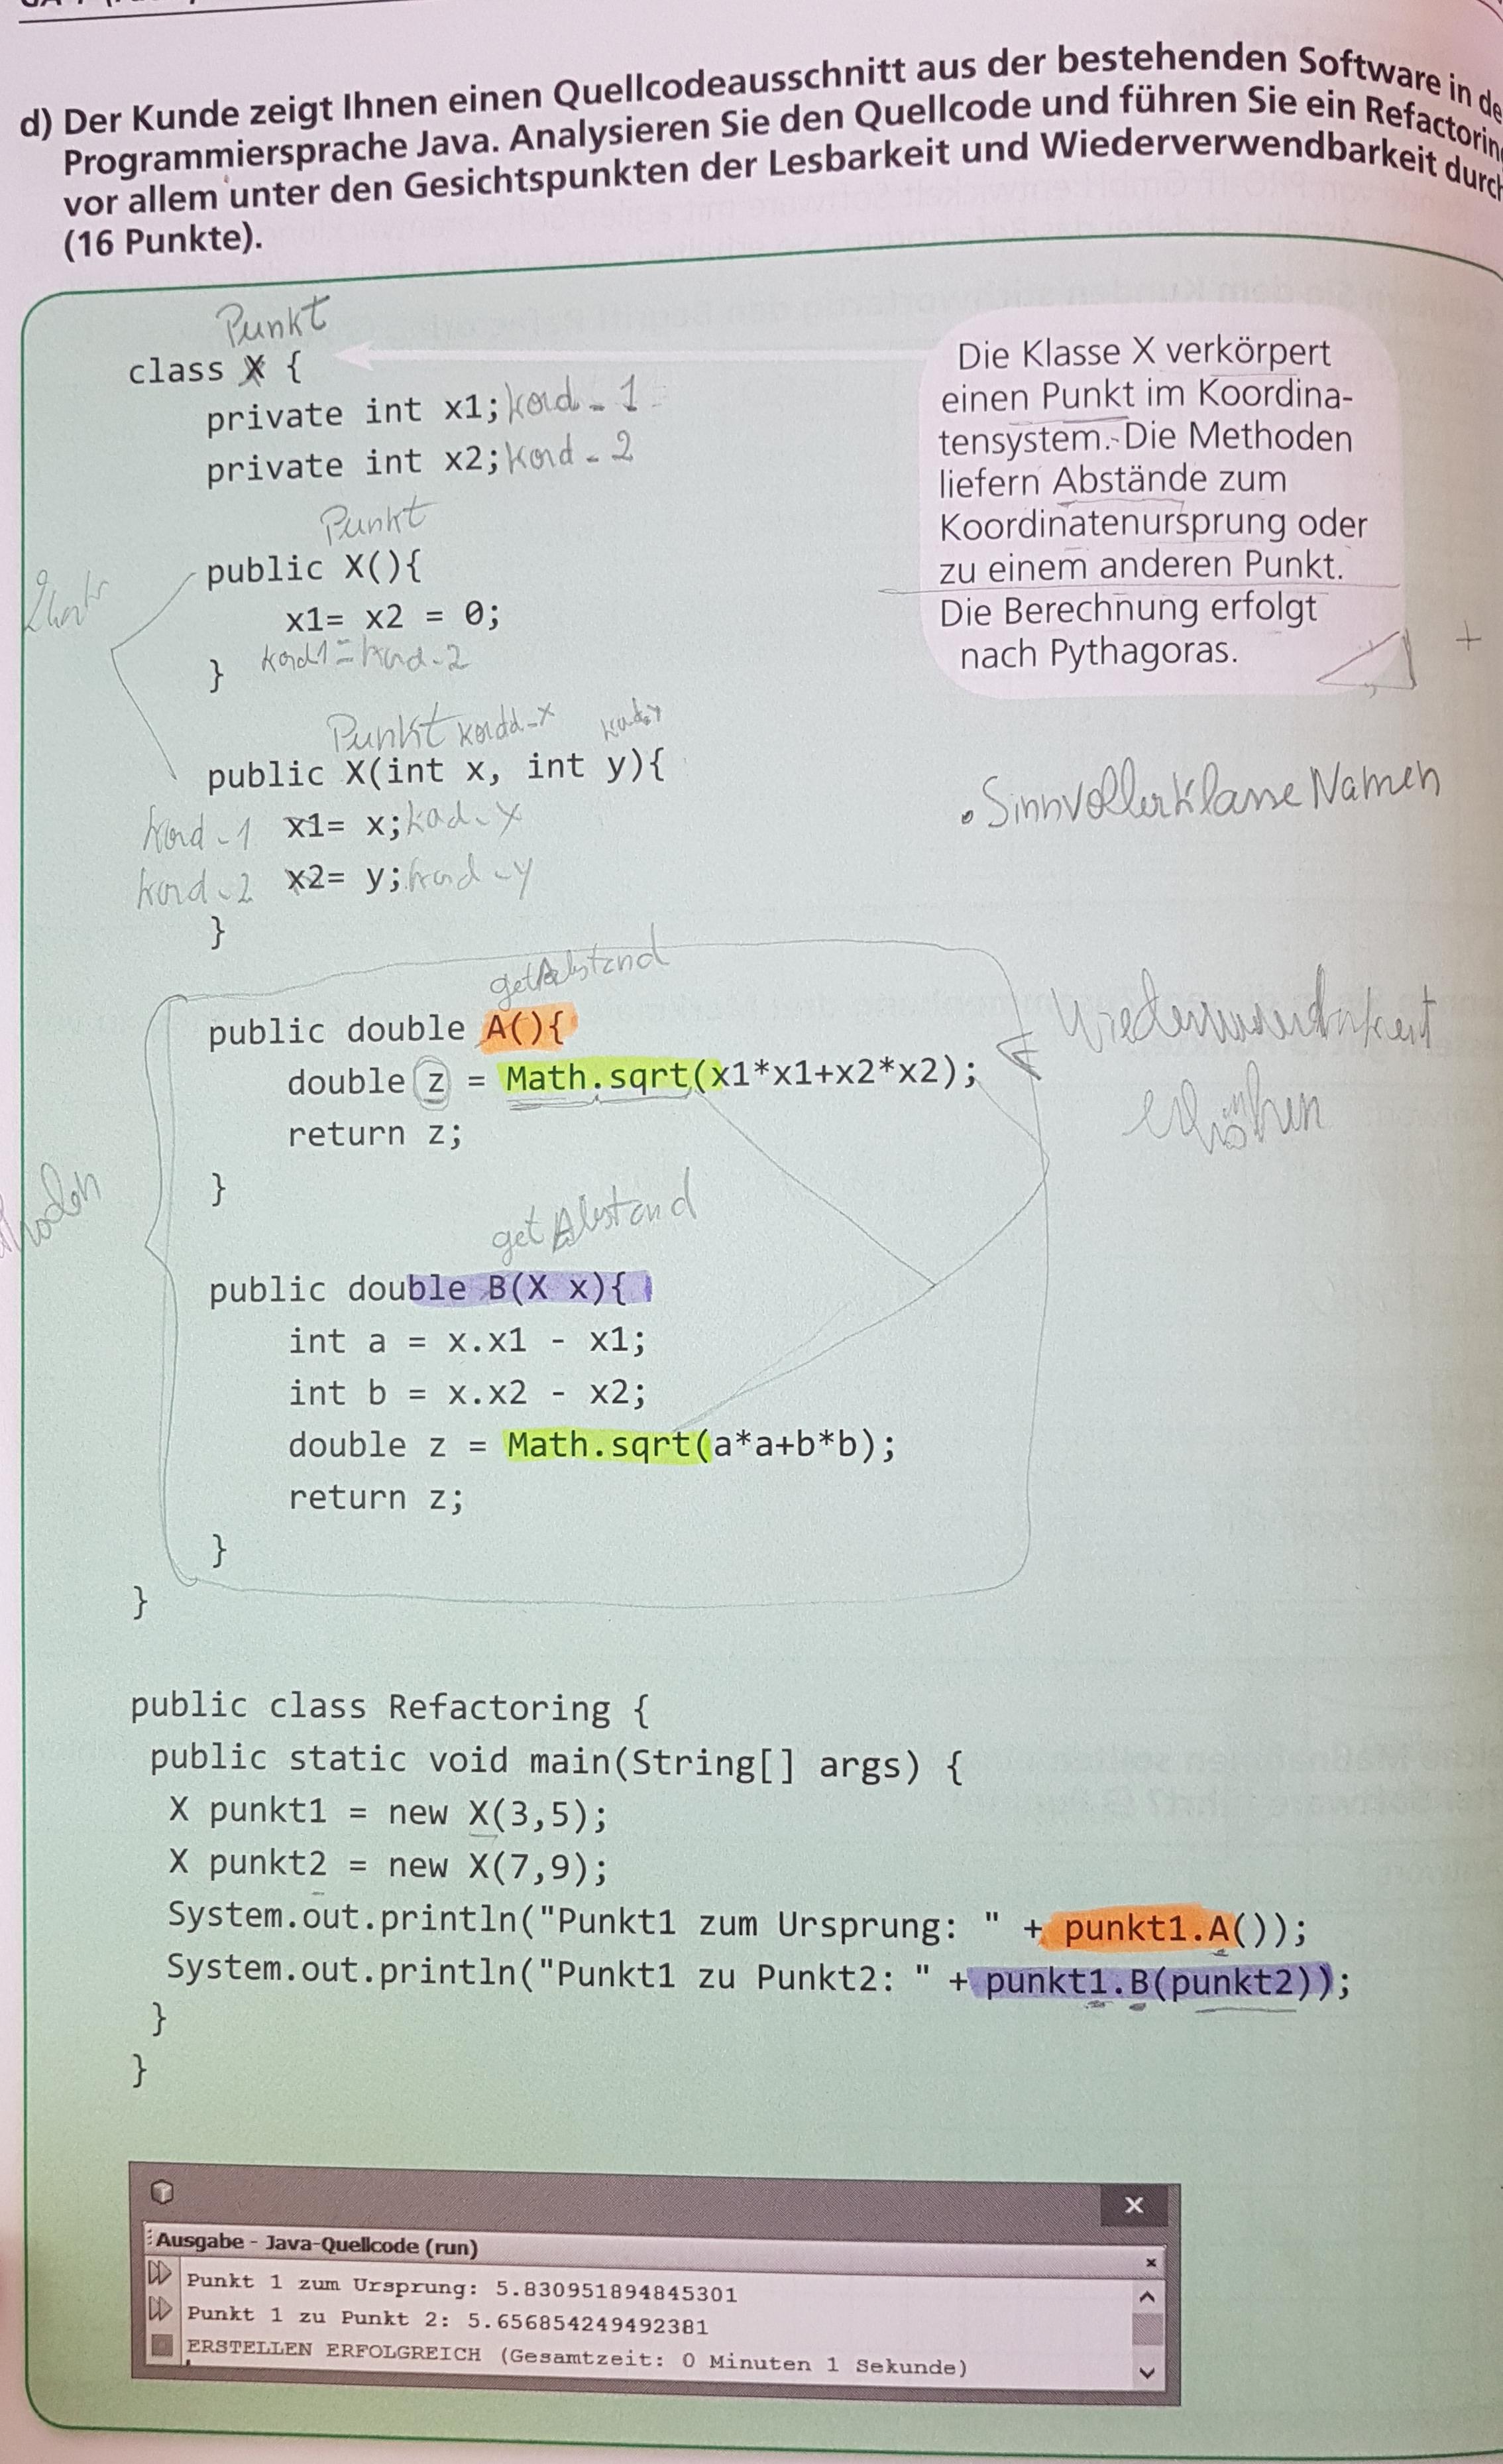 d) Der Kunde zeigt Ihnen einen Quellcodeausschnitt aus der bestehenden Software in de
Programmiersprache Java. Analysieren Sie den Quellcode und führen Sie ein Refactorin
vor allem unter den Gesichtspunkten der Lesbarkeit und Wiederverwendbarkeit durch
(16 Punkte).
Punkt
class X {
private int x1; kord_1
private int x2; kord_2
Die Klasse X verkörpert
einen Punkt im Koordina-
tensystem. Die Methoden
liefern Abstände zum
Koordinatenursprung oder
zu einem anderen Punkt.
Die Berechnung erfolgt
nach Pythagoras.
+
Punkt
public X(){
x1= x2 = 0;
kord1 = kord_2
}
Punkt
public X(int x, int y){
kord_1 x1= x; kord_x
kord_2 x2= y; kord_y
}
• Sinnvoller Klasse Namen
getAbstand
public double A(){
double z = Math.sqrt(x1*x1+x2*x2);
return z;
}
Wiederverwendbarkeit
erhöhen
getAbstand
public double B(X x){
int a = x.x1 - x1;
int b = x.x2 - x2;
double z = Math.sqrt(a*a+b*b);
return z;
}
}
public class Refactoring {
public static void main(String[] args) {
X punkt1 = new X(3,5);
X punkt2 = new X(7,9);
System.out.println("Punkt1 zum Ursprung: " + punkt1.A());
System.out.println("Punkt1 zu Punkt2: " + punkt1.B(punkt2));
}
}
Ausgabe - Java-Quellcode (run)
Punkt 1 zum Ursprung: 5.830951894845301
Punkt 1 zu Punkt 2: 5.656854249492381
ERSTELLEN ERFOLGREICH (Gesamtzeit: 0 Minuten 1 Sekunde)